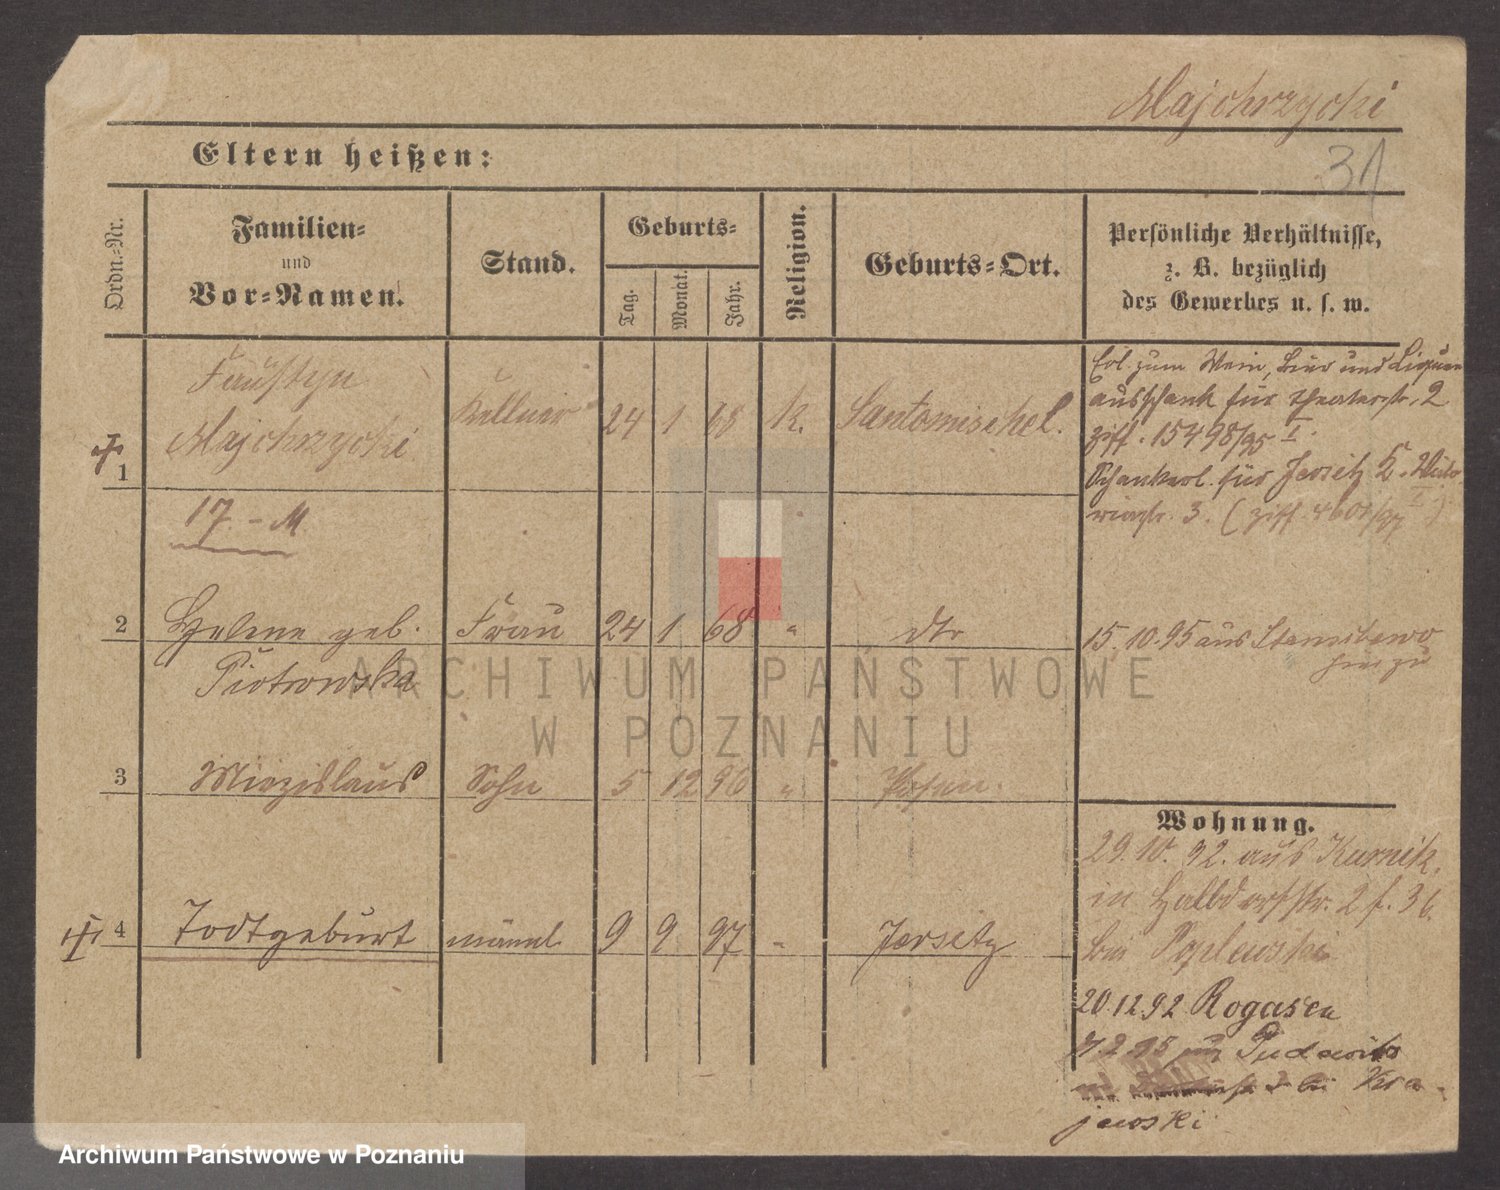 Majchrzycki
Eltern heißen:
31
Ordn.-Nr.
Familien-
und
Vor-Namen.
Stand.
Geburts-
Tag.
Monat.
Jahr.
Religion.
Geburts-Ort.
Persönliche Verhältnisse,
z. B. bezüglich
des Gewerbes u. s. w.
1
Faustyn
Majchrzycki
Kellner
24 1 68
K.
Santomischel.
Erl. zum Wein, Bier und Liqueur
ausschank für Theaterstr. 2
Ziff. 15498/95 I.
Schankerl. für Jersitz
3. (Ziff. 4601/97 I)
17. - M
2
Helene geb.
Piotrowska
Frau
24 1 68
"
dto
15.10.95 aus
hinzu
3
Miezislaus
Sohn
5 12 96
"
Posen.
4
Todtgeburt
männl.
9 9 97
"
Jersitz
Wohnung.
29.10.92. aus Kurnik,
in Halbdorfstr. 2 f. 36.
bei
20.12.92 Rogasen
aus Pudewitz
bei Kra-
jewski
ARCHIWUM PAŃSTWOWE
W POZNANIU
Archiwum Państwowe w Poznaniu